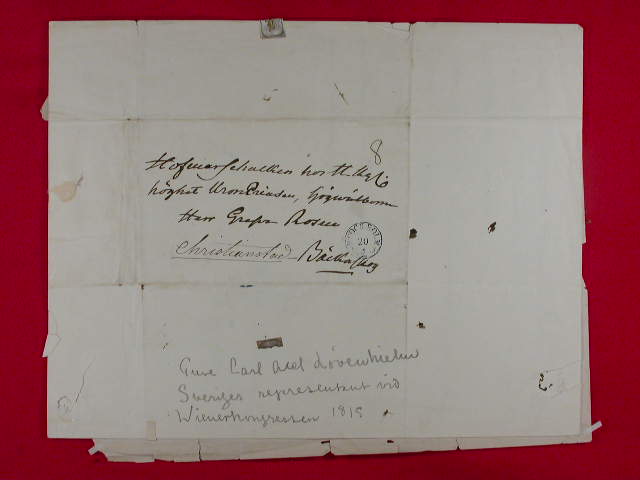 8
Hofmarschalken hos H. Kgl.
höghet Kron Prinsen, Högwälborne
Herr Grefve Rosen
Christianstad Bäckaskog
20
Greve Carl Axel Lövenhielm
Sveriges representant vid
Wienerkongressen 1815